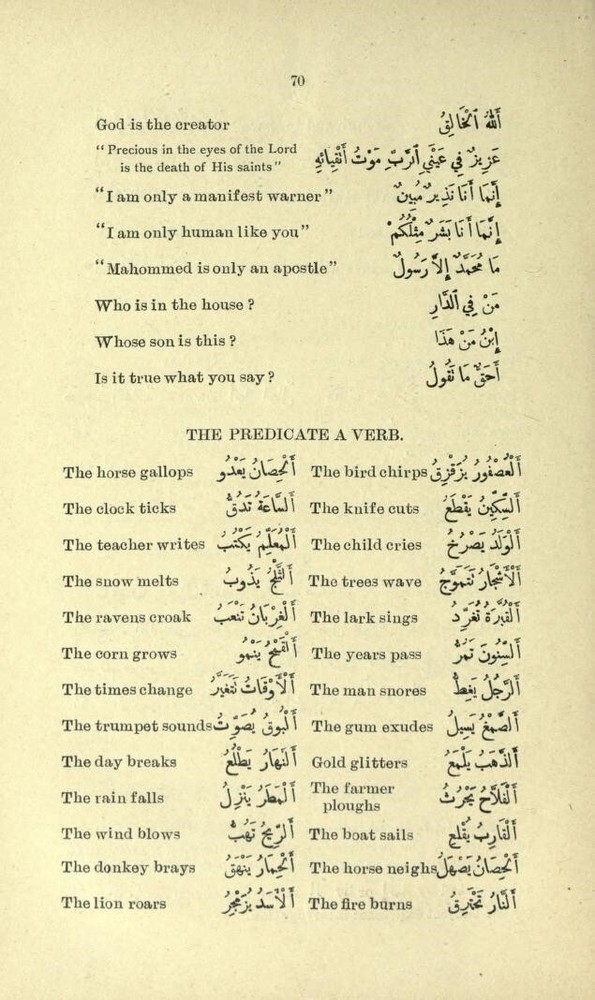 70
God is the creator أَللهُ ٱلْخَالِقُ
"Precious in the eyes of the Lord
is the death of His saints" عَزِيزٌ فِي عَيْنَيِ ٱلرَّبِّ مَوْتُ أَتْقِيَائِهِ
"I am only a manifest warner" إِنَّمَا أَنَا نَذِيرٌ مُبِينٌ
"I am only human like you" إِنَّمَا أَنَا بَشَرٌ مِثْلُكُمْ
"Mahommed is only an apostle" مَا مُحَمَّدٌ إِلاَّ رَسُولٌ
Who is in the house? مَنْ فِي ٱلدَّارِ
Whose son is this? إِبْنُ مَنْ هَذَا
Is it true what you say? أَحَقٌّ مَا تَقُولُ
THE PREDICATE A VERB.
The horse gallops أَلْحِصَانُ يَعْدُو The bird chirps أَلْعُصْفُورُ يُزَقْزِقُ
The clock ticks أَلسَّاعَةُ تَدُقُّ The knife cuts أَلسِّكِّينُ يَقْطَعُ
The teacher writes أَلْمُعَلِّمُ يَكْتُبُ The child cries أَلْوَلَدُ يَصْرُخُ
The snow melts أَلثَّلْجُ يَذُوبُ The trees wave أَلْأَشْجَارُ تَتَمَوَّجُ
The ravens croak أَلْغِرْبَانُ تَنْعَبُ The lark sings أَلْقُبَّرَةُ تُغَرِّدُ
The corn grows أَلْقَمْحُ يَنْمُو The years pass أَلسِّنُونَ تَمُرُّ
The times change أَلْأَوْقَاتُ تَتَغَيَّرُ The man snores أَلرَّجُلُ يَغِطُّ
The trumpet sounds أَلْبُوقُ يُصَوِّتُ The gum exudes أَلصَّمْغُ يَسِيلُ
The day breaks أَلنَّهَارُ يَطْلُعُ Gold glitters أَلذَّهَبُ يَلْمَعُ
The rain falls أَلْمَطَرُ يَنْزِلُ The farmer
ploughs أَلْفَلاَّحُ يَحْرُثُ
The wind blows أَلرِّيحُ تَهُبُّ The boat sails أَلْقَارِبُ يُقْلِعُ
The donkey brays أَلْحِمَارُ يَنْهَقُ The horse neighs أَلْحِصَانُ يَصْهَلُ
The lion roars أَلْأَسَدُ يُزَمْجِرُ The fire burns أَلنَّارُ تَحْتَرِقُ